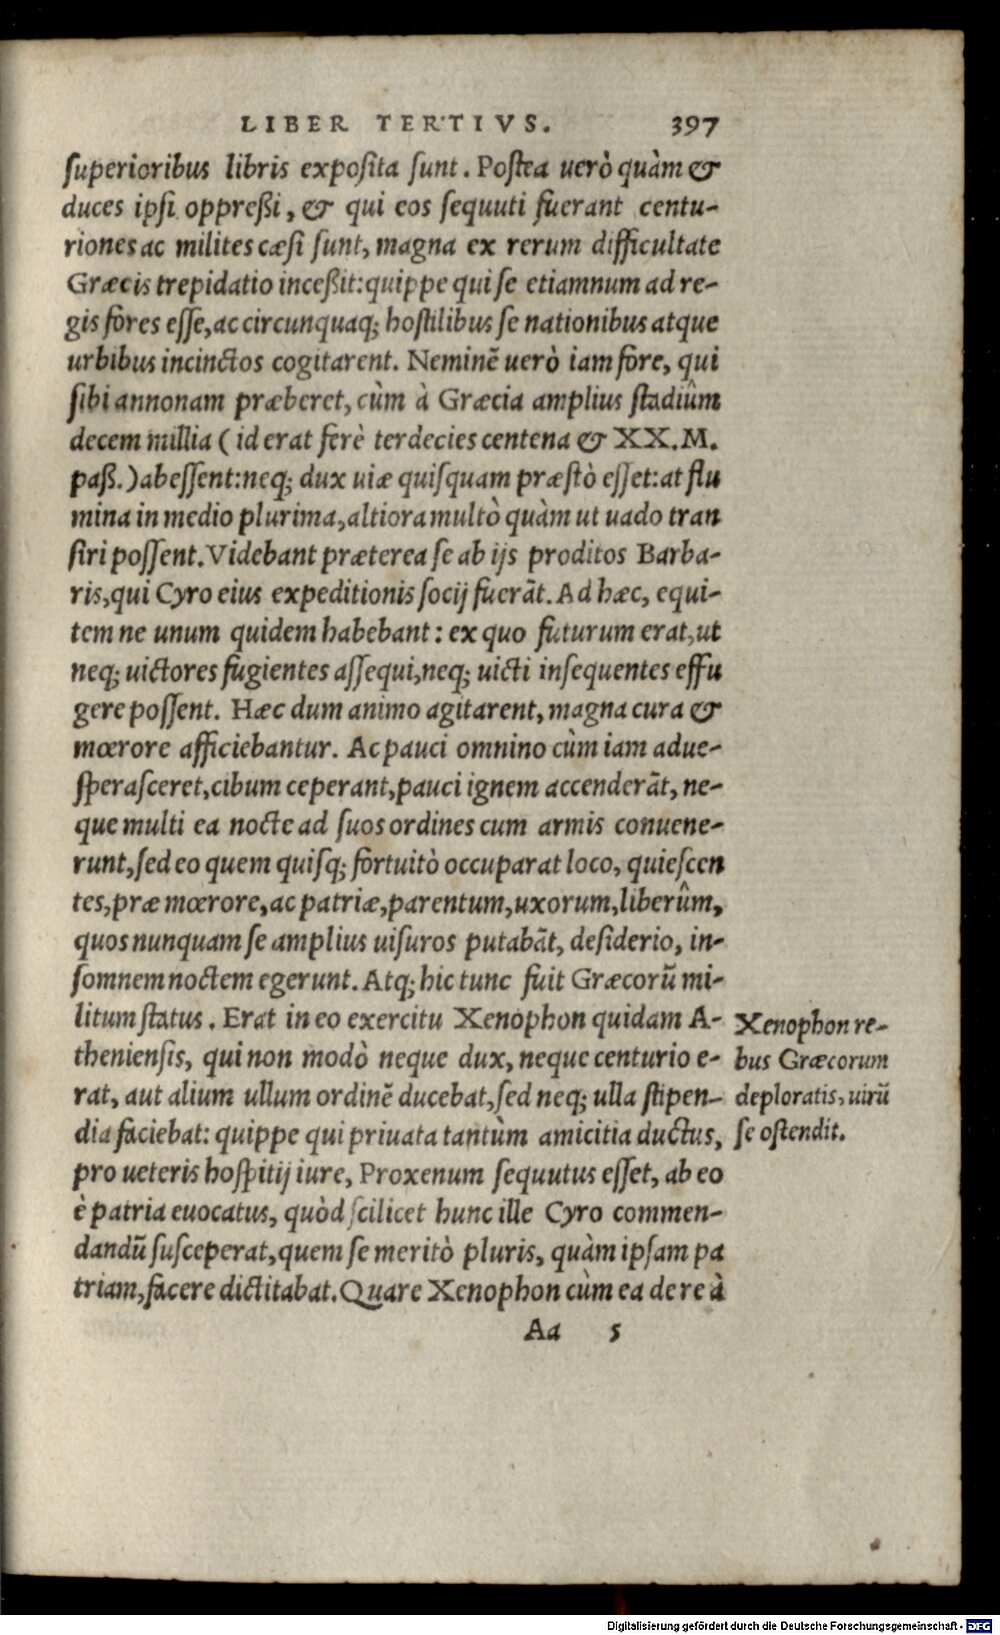 LIBER TERTIVS. 397
superioribus libris exposita sunt. Postea uerò quàm &
duces ipsi oppreßi, & qui eos sequuti fuerant centu-
riones ac milites cæsi sunt, magna ex rerum difficultate
Græcis trepidatio inceßit: quippe qui se etiamnum ad re-
gis fores esse, ac circunquaq; hostilibus se nationibus atque
urbibus incinctos cogitarent. Neminẽ uerò iam fore, qui
sibi annonam præberet, cùm à Græcia amplius stadiûm
decem millia (id erat ferè terdecies centena & XX.M.
paß.) abessent: neq; dux uiæ quisquam præstò esset: at flu
mina in medio plurima, altiora multò quàm ut uado tran
siri possent. Videbant præterea se ab ijs proditos Barba-
ris, qui Cyro eius expeditionis socij fuerãt. Ad hæc, equi-
tem ne unum quidem habebant: ex quo futurum erat, ut
neq; uictores fugientes assequi, neq; uicti insequentes effu
gere possent. Hæc dum animo agitarent, magna cura &
mœrore afficiebantur. Ac pauci omnino cùm iam adue-
sperasceret, cibum ceperant, pauci ignem accenderãt, ne-
que multi ea nocte ad suos ordines cum armis conuene-
runt, sed eo quem quisq; fortuitò occuparat loco, quiescen
tes, præ mœrore, ac patriæ, parentum, uxorum, liberûm,
quos nunquam se amplius uisuros putabãt, desiderio, in-
somnem noctem egerunt. Atq; hic tunc fuit Græcorũ mi-
litum status. Erat in eo exercitu Xenophon quidam A-
theniensis, qui non modò neque dux, neque centurio e-
rat, aut alium ullum ordinẽ ducebat, sed neq; ulla stipen-
dia faciebat: quippe qui priuata tantùm amicitia ductus,
pro ueteris hospitij iure, Proxenum sequutus esset, ab eo
è patria euocatus, quòd scilicet hunc ille Cyro commen-
dandũ susceperat, quem se meritò pluris, quàm ipsam pa
triam, facere dictitabat. Quare Xenophon cùm ea de re à
Aa 5
Xenophon re-
bus Græcorum
deploratis, uirũ
se ostendit.
Digitalisierung gefördert durch die Deutsche Forschungsgemeinschaft - DFG